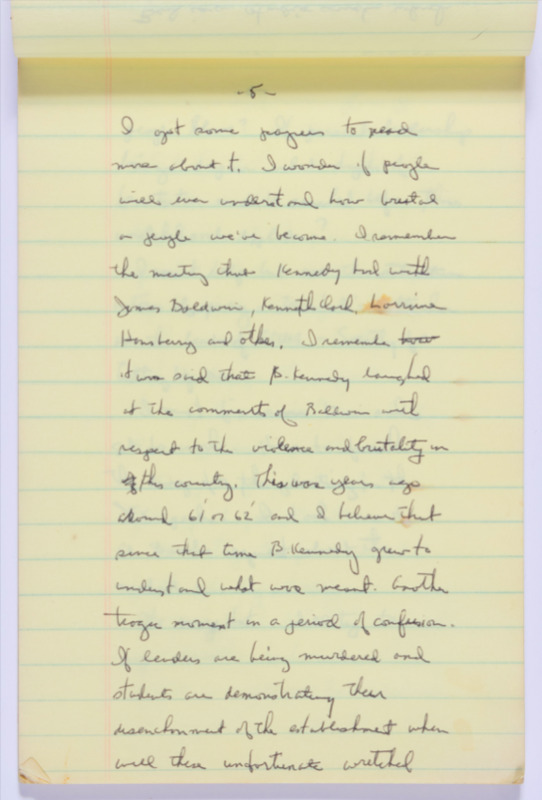 -5-
I got some papers to read
more about it. I wonder if people
will ever understand how brutal
a people we've become. I remember
the meeting that Kennedy had with
James Baldwin, Kenneth Clark, Lorraine
Hansberry and others. I remember how
it was said that B. Kennedy laughed
at the comments of Baldwin with
respect to the violence and brutality in
this country. This was years ago
around 61' or 62' and I believe that
since that time B Kennedy grew to
understand what was meant. Another
tragic moment in a period of confusion.
If leaders are being murdered and
students are demonstrating their
disenchanment of the establishment when
will these unfortunate wretched